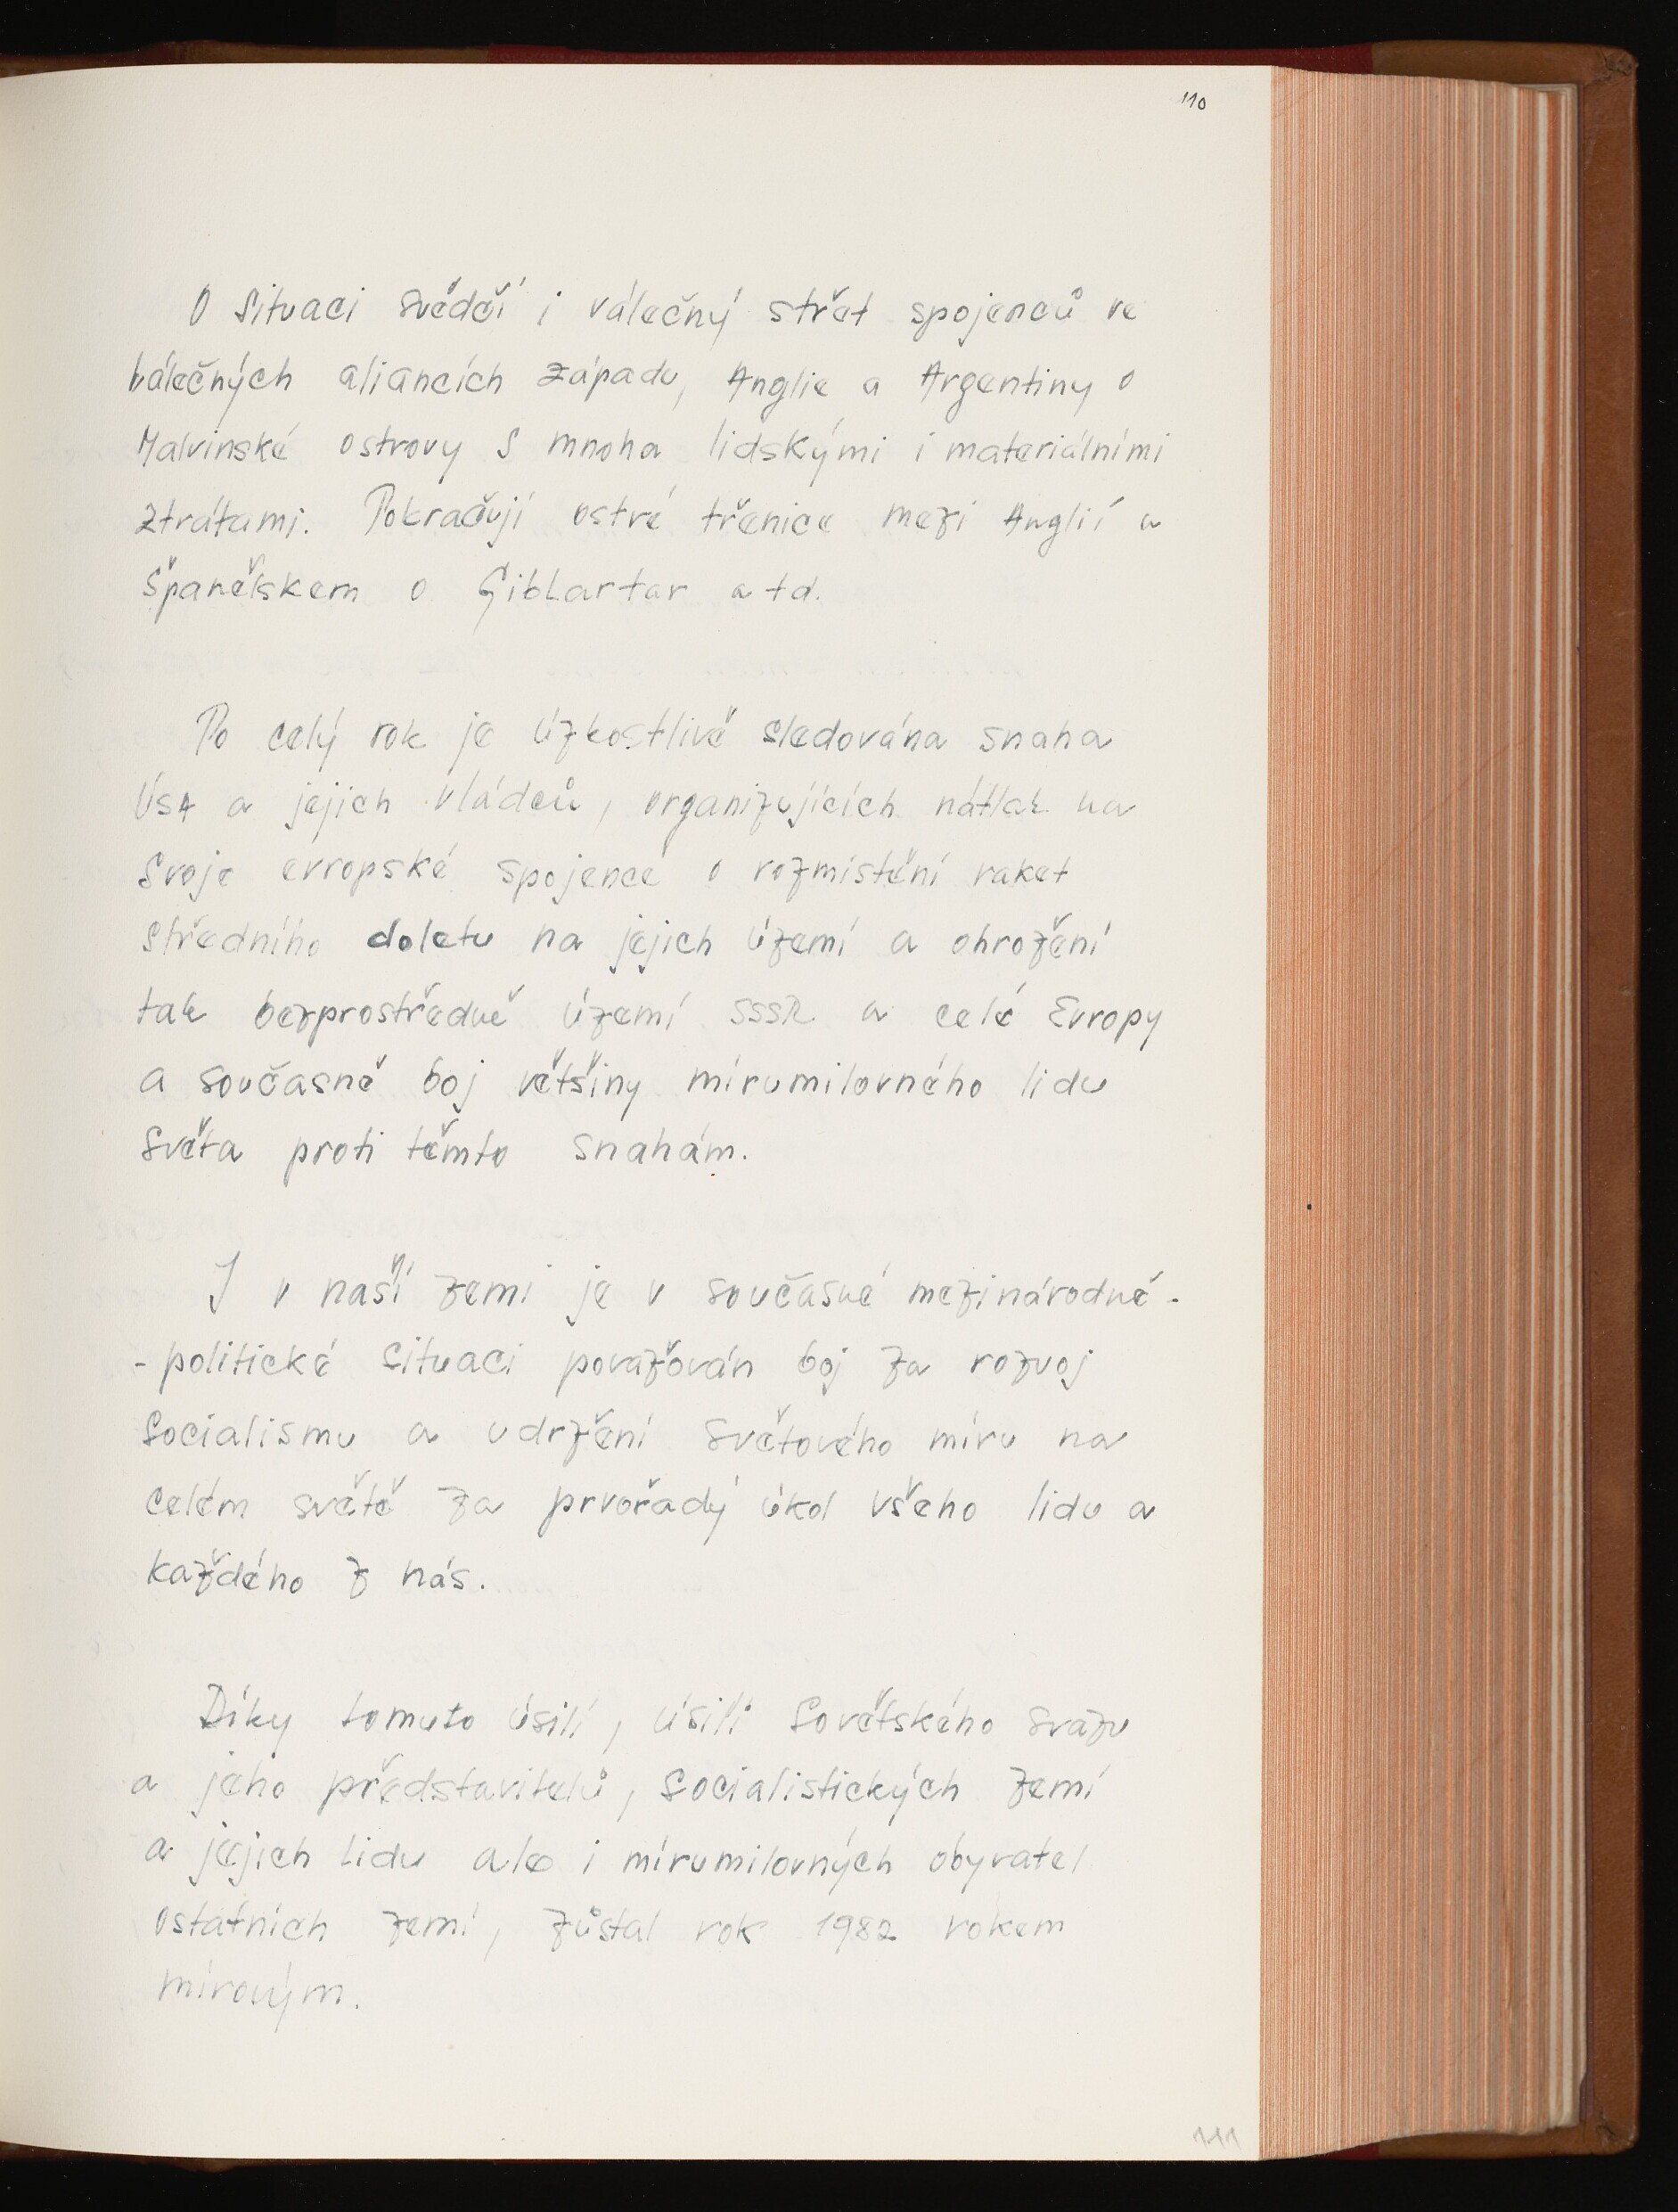 110
O situaci svědčí i válečný střet spojenců ve
válečných aliancích západu, Anglie a Argentiny o
Malvinské ostrovy s mnoha lidskými i materiálními
ztrátami. Pokračují ostré třenice mezi Anglií a
Španělskem o Giblartar atd.
Po celý rok je úzkostlivě sledována snaha
USA a jejich vládců, organizujících nátlak na
svoje evropské spojence o rozmistění raket
středního doletu na jejich území a ohrožení
tak bezprostředně území SSSR a celé Evropy
a současně boj většiny mírumilovného lidu
světa proti těmto snahám.
I v naší zemi je v současné mezinárodně-
-politické situaci považován boj za rozvoj
socialismu a udržení světového míru na
celém světě za prvořadý úkol všeho lidu a
každého z nás.
Díky tomuto úsilí, úsilí Sovětského svazu
a jeho představitelů, socialistických zemí
a jejich lidu ale i mírumilovných obyvatel
ostatních zemí, zůstal rok 1982 rokem
mírovým.
111